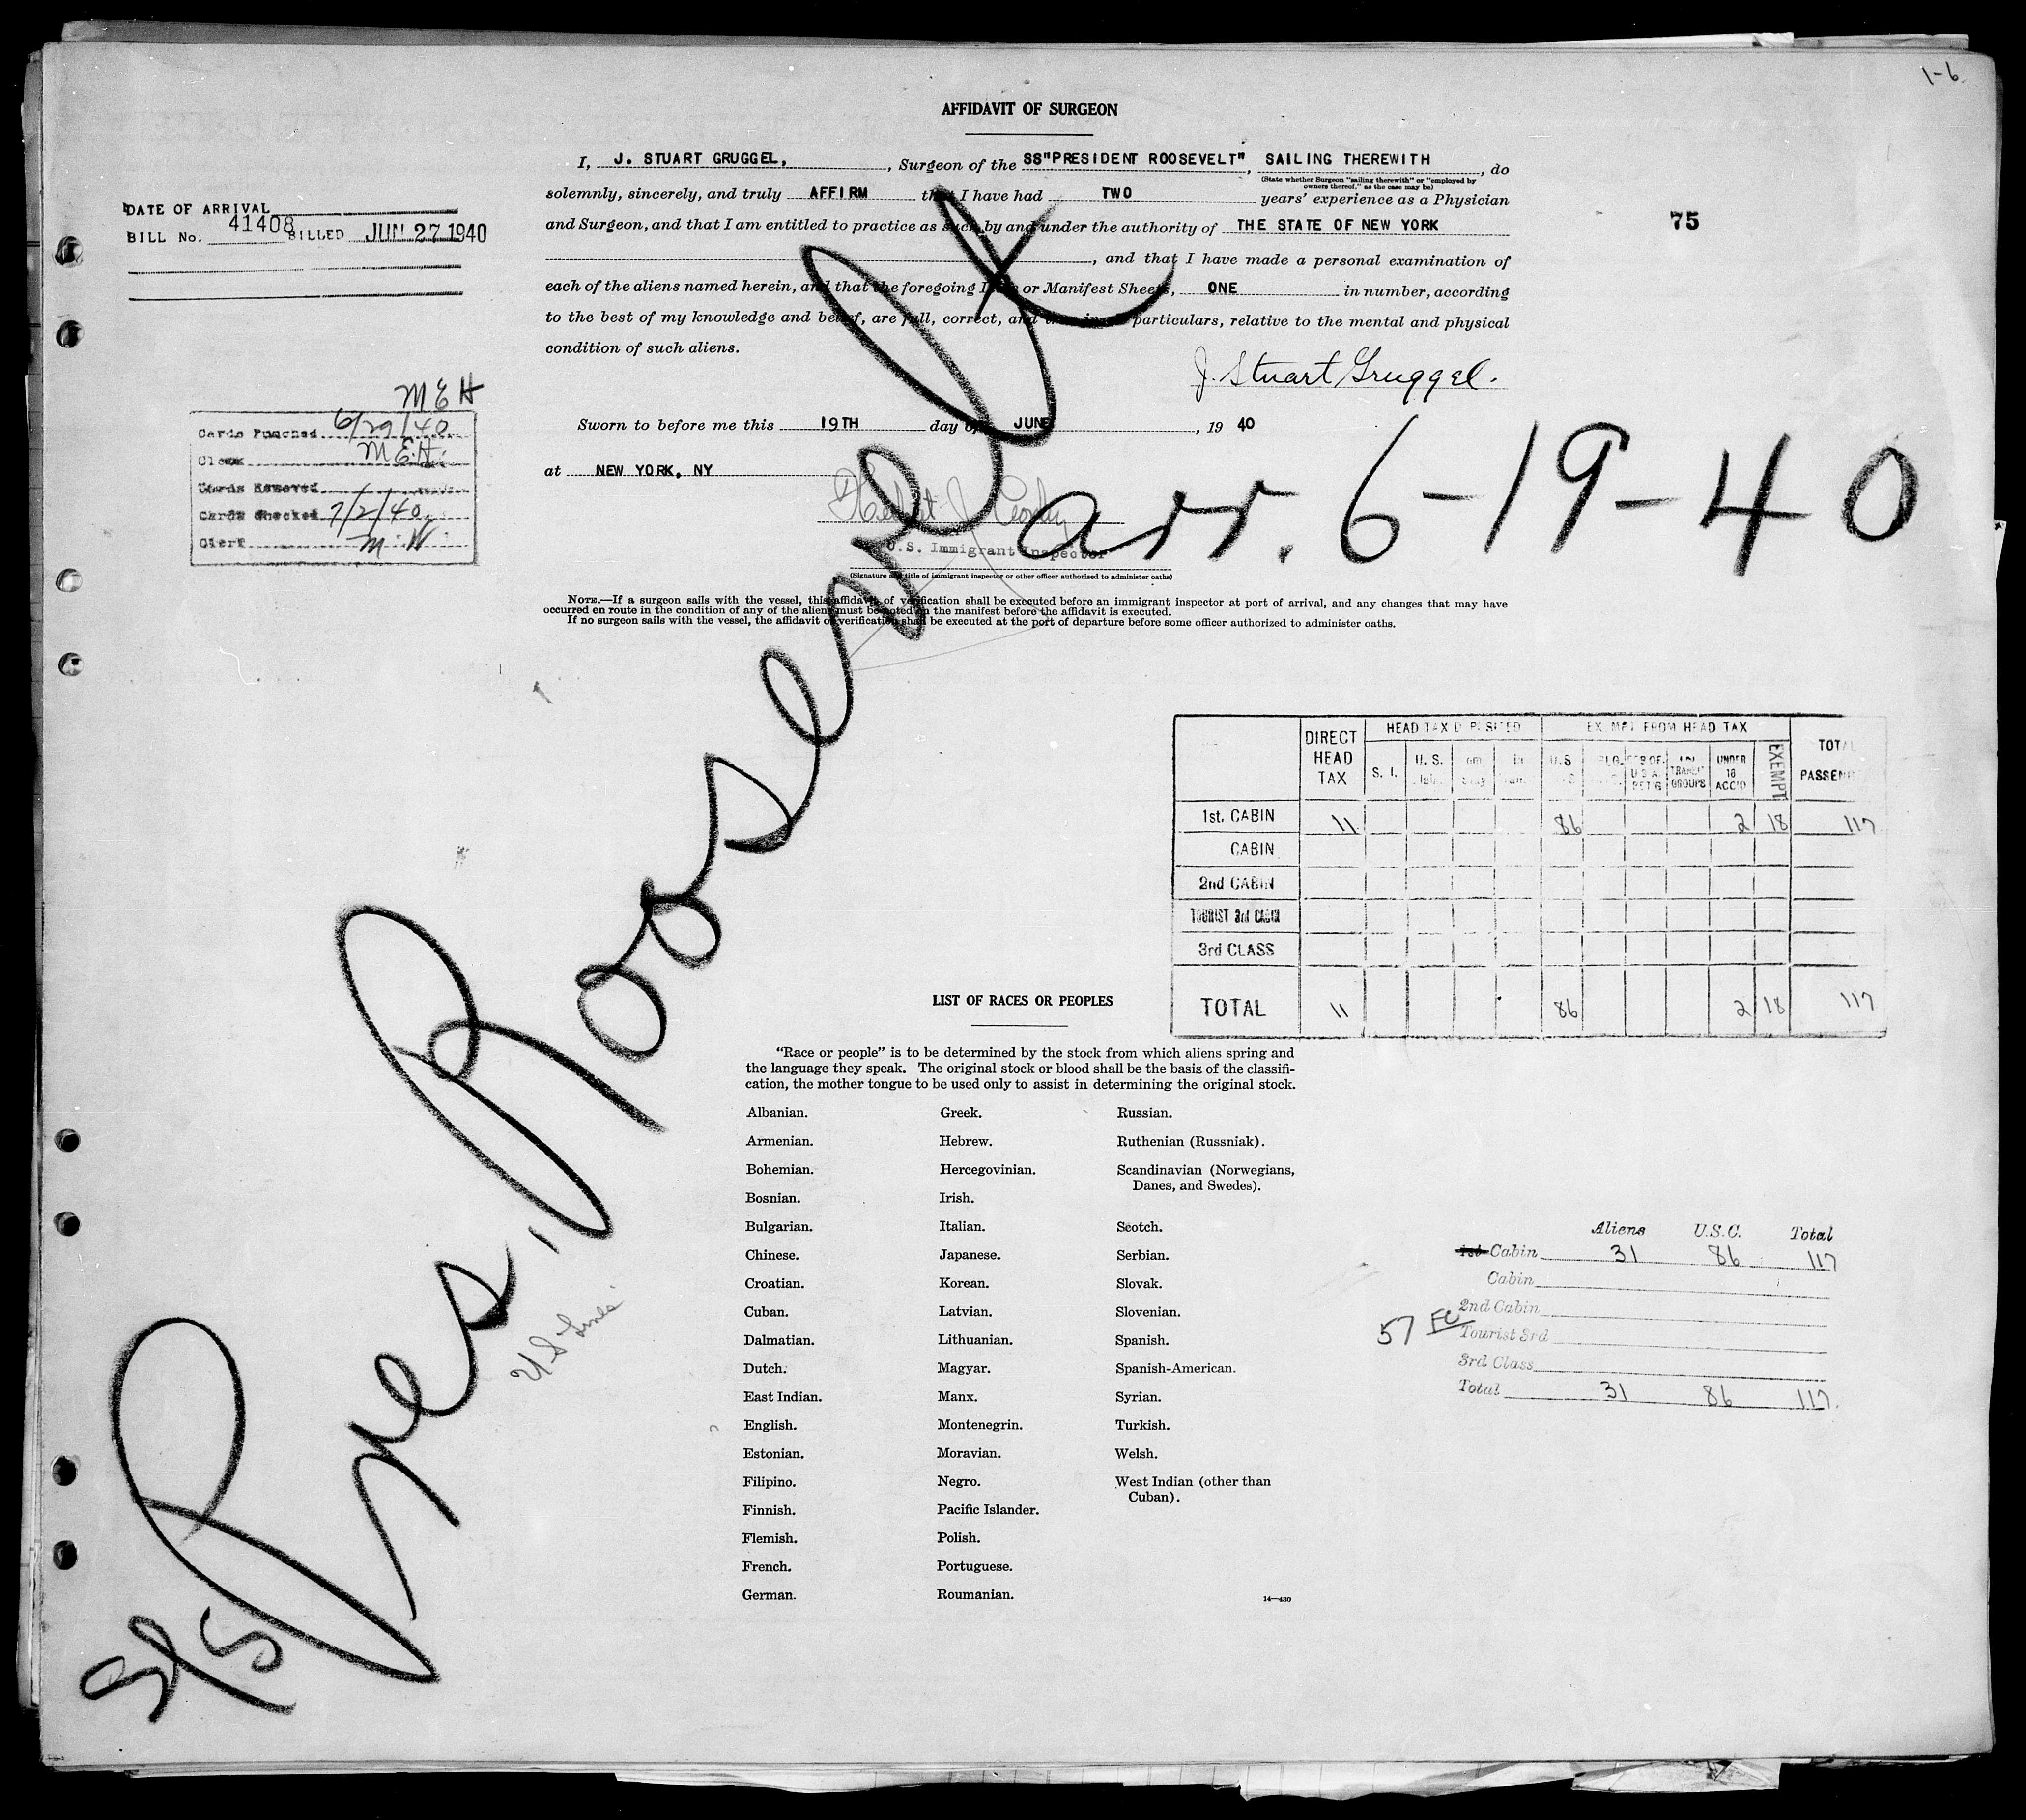 1-6
AFFIDAVIT OF SURGEON
I, J. STUART GRUGGEL, , Surgeon of the SS"PRESIDENT ROOSEVELT", SAILING THEREWITH , do
(State whether Surgeon "sailing therewith" or "employed by
owners thereof," as the case may be)
solemnly, sincerely, and truly AFFIRM that I have had TWO years' experience as a Physician
and Surgeon, and that I am entitled to practice as such by and under the authority of THE STATE OF NEW YORK
, and that I have made a personal examination of
each of the aliens named herein, and that the foregoing Lists or Manifest Sheets, ONE in number, according
to the best of my knowledge and belief, are full, correct, and true in all particulars, relative to the mental and physical
condition of such aliens.
J. Stuart Gruggel.
Sworn to before me this 19TH day of JUNE , 19 40
at NEW YORK, NY
U.S. Immigrant Inspector
(Signature and title of immigrant inspector or other officer authorized to administer oaths)
NOTE.—If a surgeon sails with the vessel, this affidavit of verification shall be executed before an immigrant inspector at port of arrival, and any changes that may have
occurred en route in the condition of any of the aliens must be noted on the manifest before the affidavit is executed.
If no surgeon sails with the vessel, the affidavit of verification shall be executed at the port of departure before some officer authorized to administer oaths.
DATE OF ARRIVAL
BILL No. 41408 BILLED JUN 27 1940
75
MEH
Cards Punched 6/29/40
Clerk MEH
Cards Removed
Cards Checked 7/2/40
Clerk M.W
S/S Pres, Roosevelt
arr. 6-19-40
US Lines
DIRECT HEAD TAX HEAD TAX DEPOSITED EXEMPT FROM HEAD TAX TOTAL PASSENG
S. I. U. S. U.S UNDER 16 ACC'D EXEMPT
TRANSIT GROUPS
1st. CABIN 11 86 2 18 117
CABIN
2nd CABIN
TOURIST 3rd CABIN
3rd CLASS
TOTAL 11 86 2 18 117
LIST OF RACES OR PEOPLES
"Race or people" is to be determined by the stock from which aliens spring and
the language they speak. The original stock or blood shall be the basis of the classifi-
cation, the mother tongue to be used only to assist in determining the original stock.
Albanian.
Armenian.
Bohemian.
Bosnian.
Bulgarian.
Chinese.
Croatian.
Cuban.
Dalmatian.
Dutch.
East Indian.
English.
Estonian.
Filipino.
Finnish.
Flemish.
French.
German.
Greek.
Hebrew.
Hercegovinian.
Irish.
Italian.
Japanese.
Korean.
Latvian.
Lithuanian.
Magyar.
Manx.
Montenegrin.
Moravian.
Negro.
Pacific Islander.
Polish.
Portuguese.
Roumanian.
Russian.
Ruthenian (Russniak).
Scandinavian (Norwegians,
Danes, and Swedes).
Scotch.
Serbian.
Slovak.
Slovenian.
Spanish.
Spanish-American.
Syrian.
Turkish.
Welsh.
West Indian (other than
Cuban).
14—430
Aliens U.S.C. Total
1st Cabin 31 86 117
Cabin
2nd Cabin
57 FC Tourist 3rd
3rd Class
Total 31 86 117